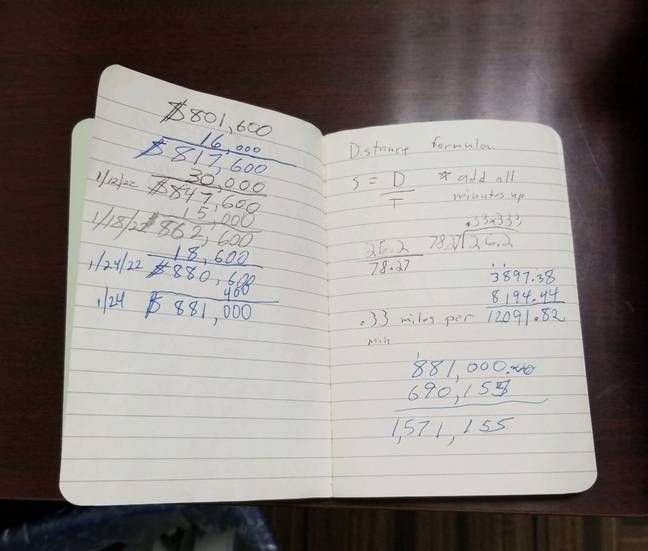 $801,600
16,000
$817,600
30,000
1/12/22 $847,600
15,000
1/18/22 $862,600
18,600
1/24/22 $880,600
400
1/24 $881,000
Distance Formula
S = D * add all
T minutes up
.33333
26.2 78.27 26.2
78.27
3897.38
8194.44
.33 miles per 12091.82
min
881,000.00
690,155
1,571,155